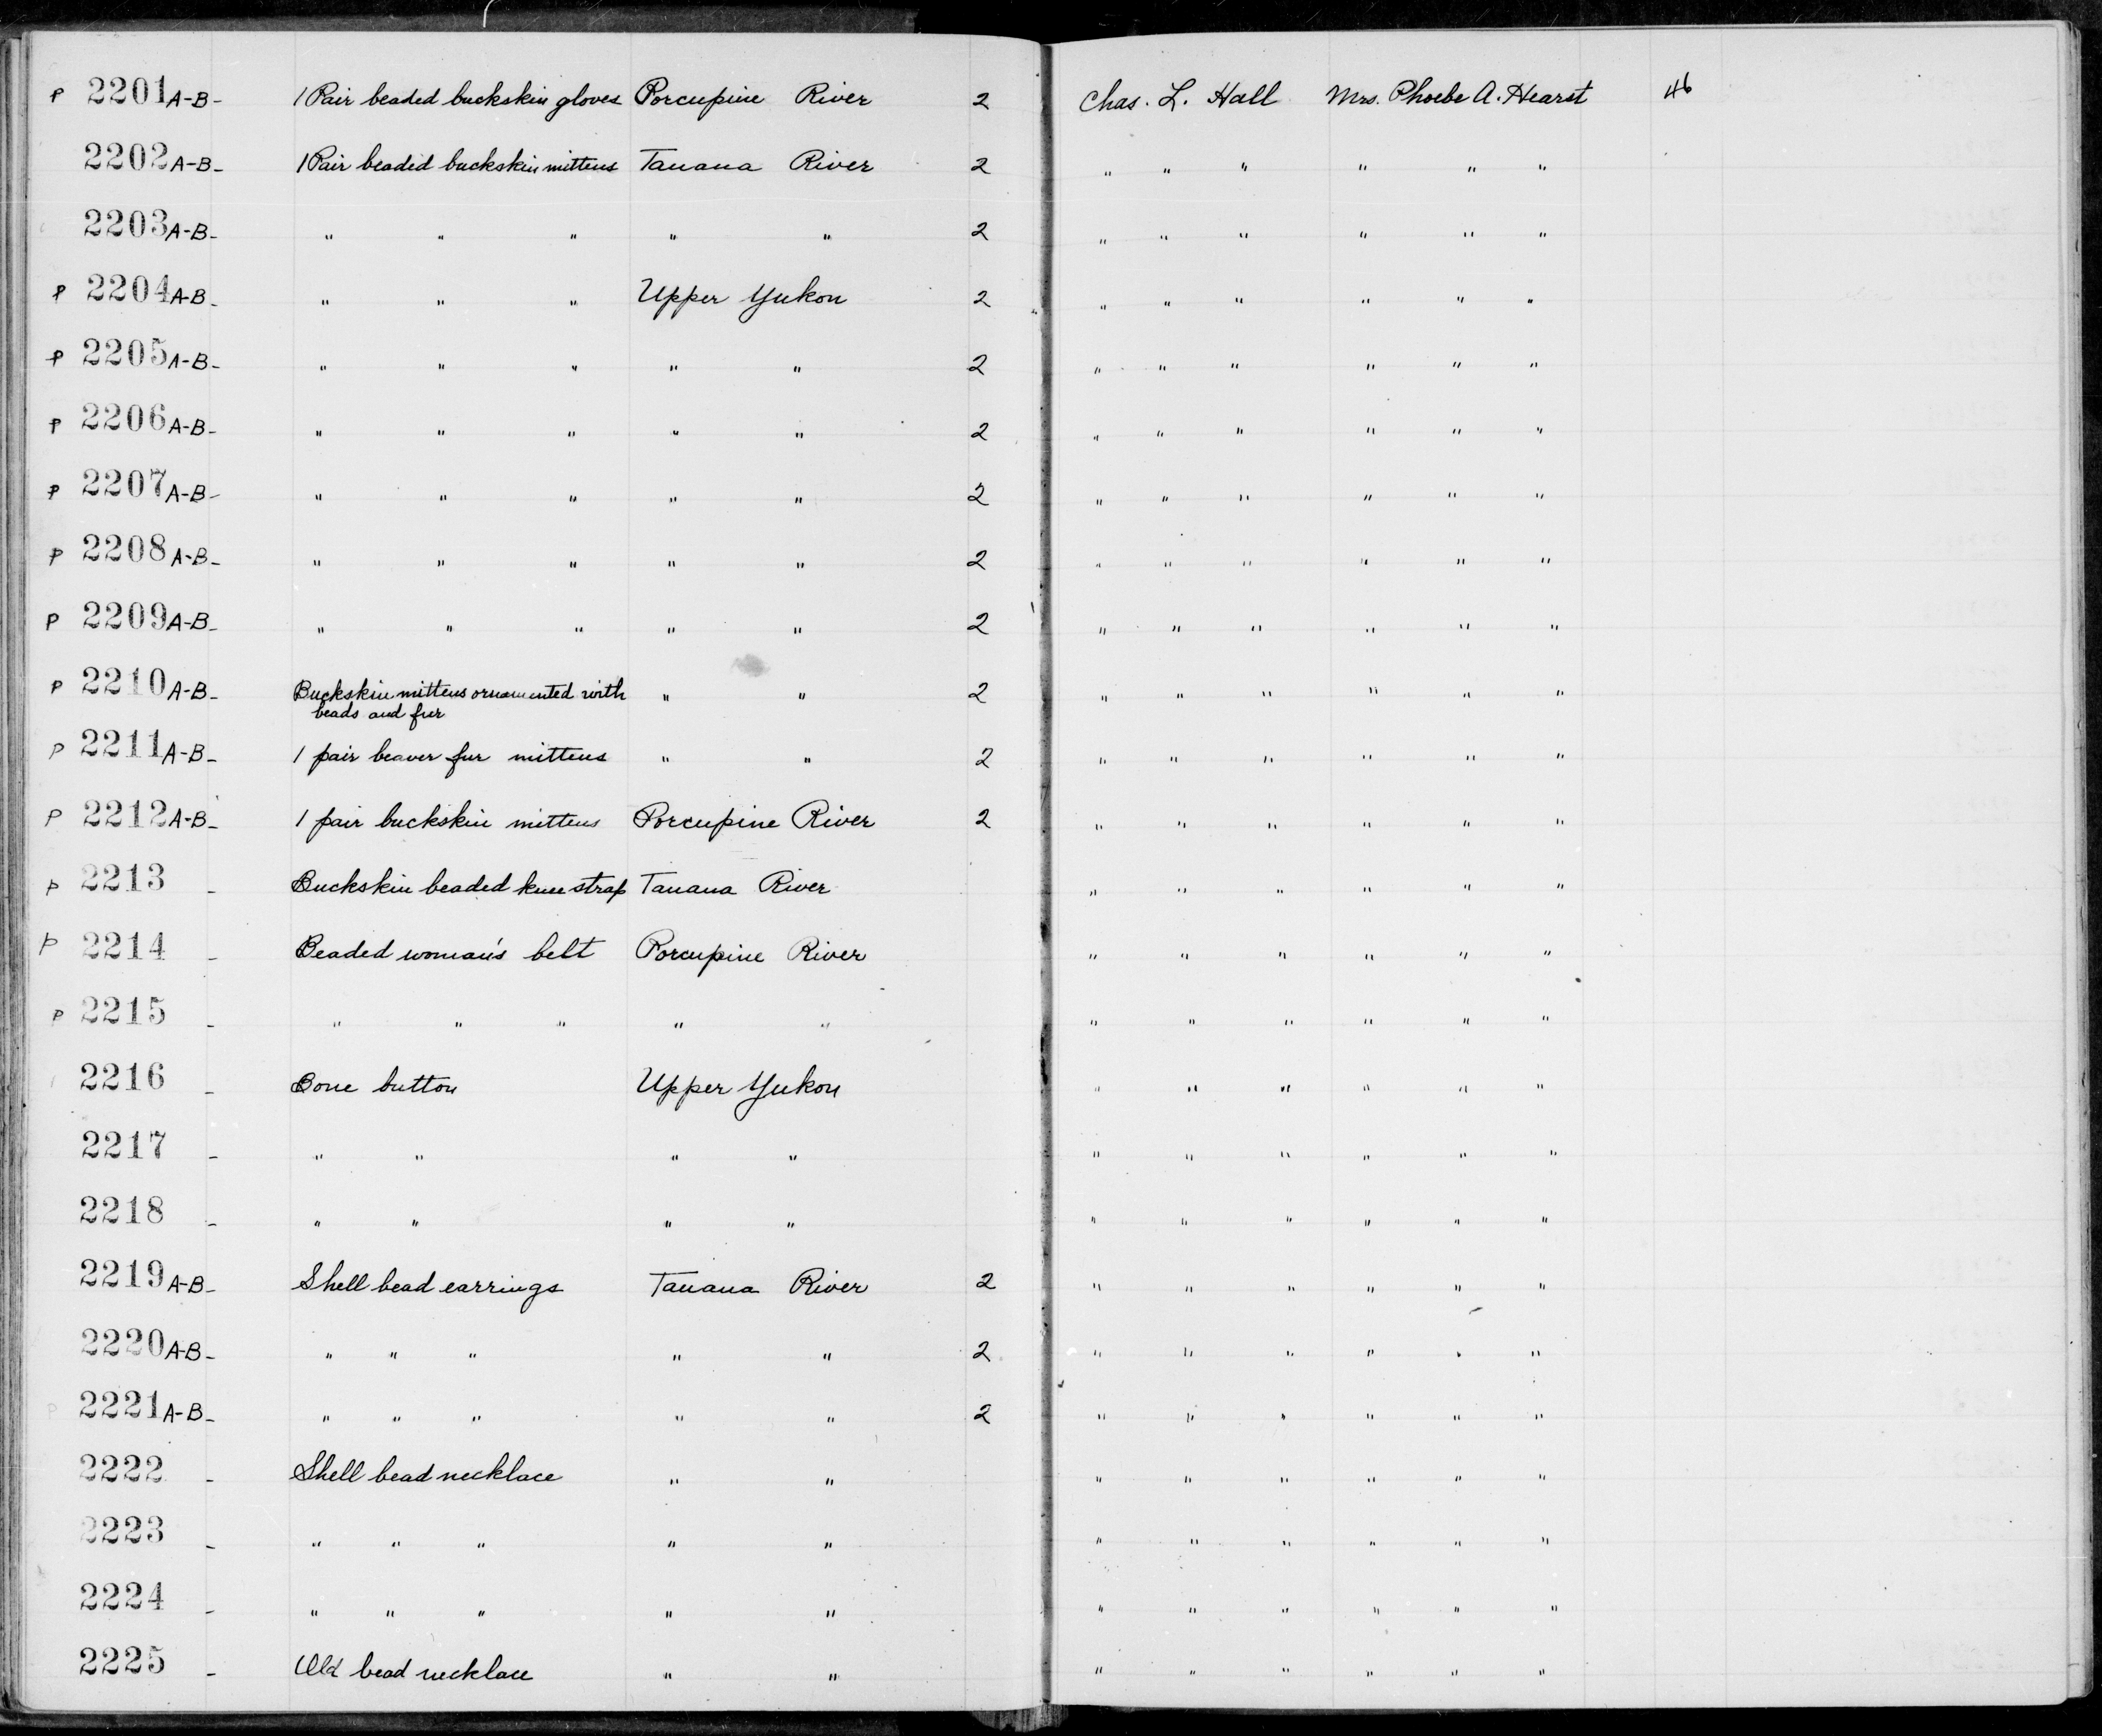 P 2201 A-B - 1 Pair beaded buckskin gloves Porcupine River 2 Chas. L. Hall Mrs. Phoebe A. Hearst 46
2202 A-B - 1 Pair beaded buckskin mittens Tanana River 2 " " " " " "
2203 A-B - " " " " " 2 " " " " " "
P 2204 A-B - " " " Upper Yukon 2 " " " " " "
P 2205 A-B - " " " " " 2 " " " " " "
P 2206 A-B - " " " " " 2 " " " " " "
P 2207 A-B - " " " " " 2 " " " " " "
P 2208 A-B - " " " " " 2 " " " " " "
P 2209 A-B - " " " " " 2 " " " " " "
P 2210 A-B - Buckskin mittens ornamented with " " 2 " " " " " "
beads and fur
P 2211 A-B - 1 pair beaver fur mittens " " 2 " " " " " "
P 2212 A-B - 1 pair buckskin mittens Porcupine River 2 " " " " " "
P 2213 - Buckskin beaded knee strap Tanana River " " " " " "
P 2214 - Beaded woman's belt Porcupine River " " " " " "
P 2215 - " " " " " " " " " " "
2216 - Bone button Upper Yukon " " " " " "
2217 - " " " " " " " " " "
2218 - " " " " " " " " " "
2219 A-B - Shell bead earrings Tanana River 2 " " " " " "
2220 A-B - " " " " " 2 " " " " " "
P 2221 A-B - " " " " " 2 " " " " " "
2222 - Shell bead necklace " " " " " " " "
2223 - " " " " " " " " " " "
2224 - " " " " " " " " " " "
2225 - Old bead necklace " " " " " " " "